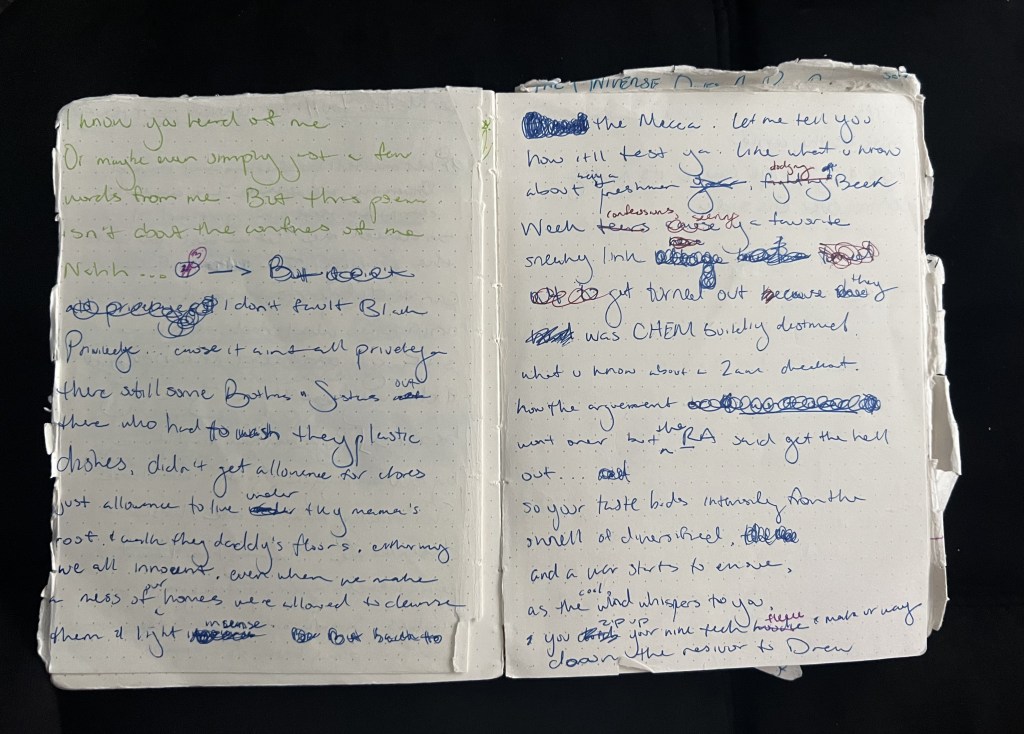 I know you heard of me.
Or maybe even simply just a few
words from me. But this poem
isn't about the confines of me
Nahh... → But
I don't fault Black
Priviledge... cause it aint all priviledge
there still some Brothas & Sistas out
there who had to wash they plastic
dishes, didn't get allowance for chores
just allowance to live under they mama's
roof, & walk they daddy's floors,
we all innocent, even when we make
a mess of our homes were allowed to cleanse
them & light insense But back to
THE UNIVERSE
the Mecca. Let me tell you
how it'll test ya. Like what u know
about being a freshmen, dodgying fighting Beek
Week tears confessions, seeing cause y a favorite
sneaky link
get turned out because they
was CHEM building destined.
what u know about a 2am checkout.
how the arguement
went over but the RA said get the hell
out...
so your taste buds intensify from the
smell of diversified,
and a war starts to ensue,
as the cool wind whispers to you,
& you zip up your nine tech fleece & make ur way
down the resivor to Drew